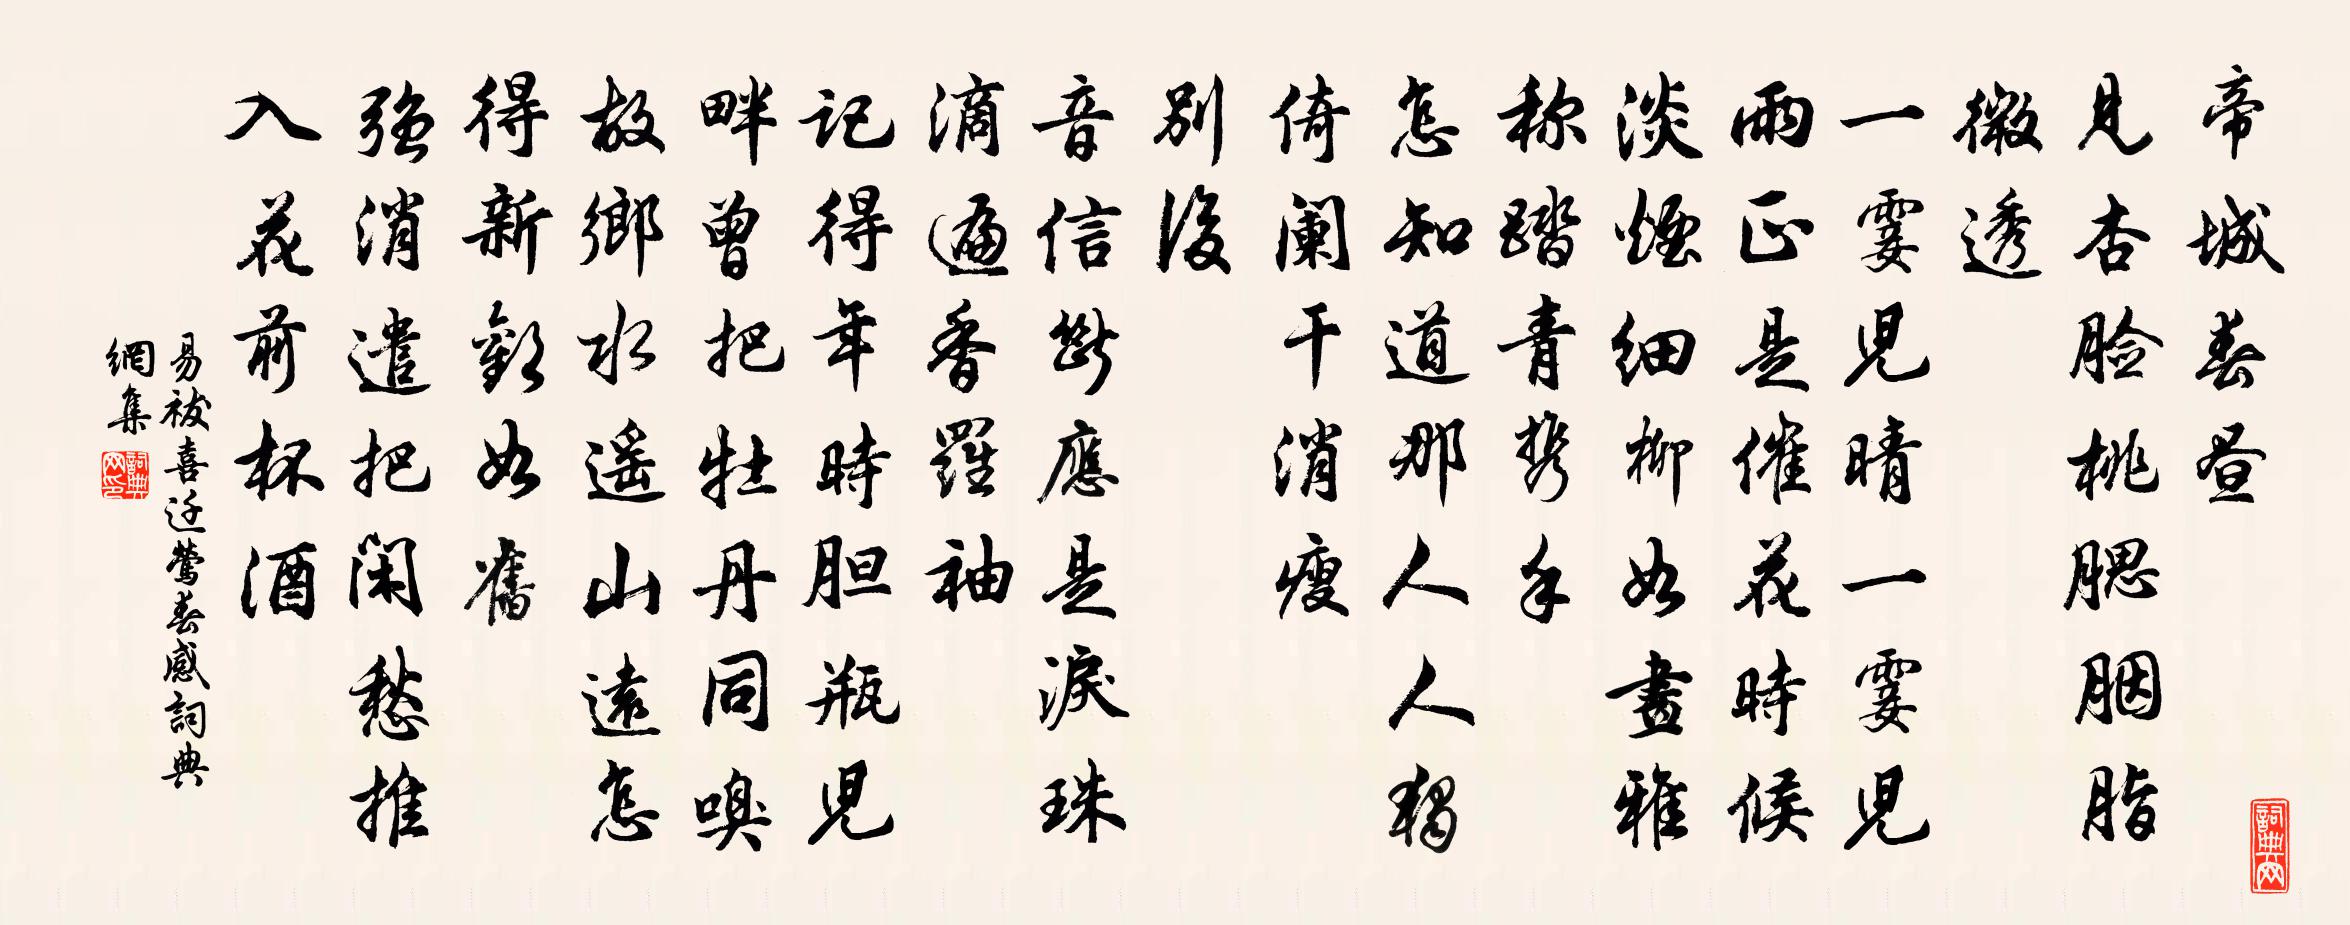 帝城春昼
見杏脸桃腮胭脂
微透
一霎児晴一霎児
雨正是催花時候
淡煙细柳如畫雅
称踏青携手
怎知道那人人独
倚阑干消瘦
别後
音信断應是淚珠
滴遍香羅袖
记得年時胆瓶児
畔曾把牡丹同嗅
故鄉水遥山遠怎
得新歡如舊
强消遣把閑愁推
入花前杯酒
易袚喜迁鶯春感詞典
網集
詞典网印
詞典网